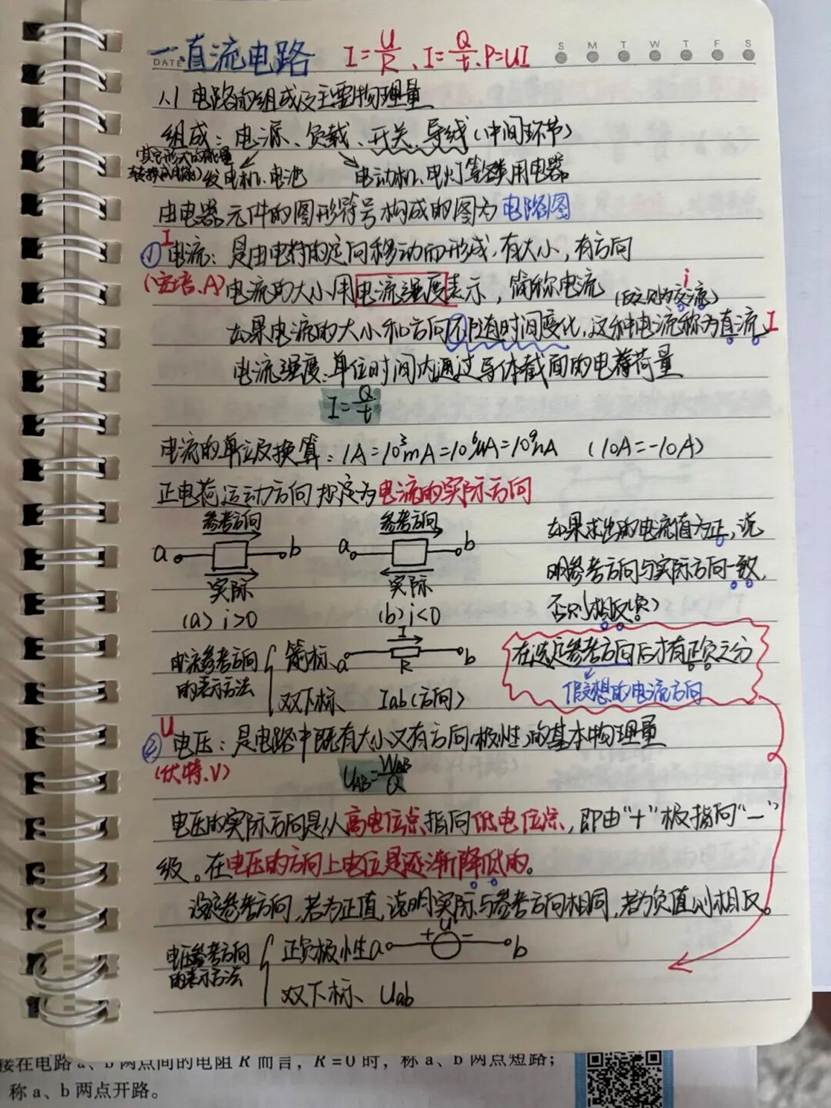 一 直流电路 I=U/R、I=Q/t、P=UI
DATE S M T W T F S
1.1 电路的组成及主要物理量
组成：电源、负载、开关、导线(中间环节)
发电机、电池 电动机、电灯等 用电器
由电器元件的图形符号构成的图为电路图
I
① 电流：是由电荷的定向移动而形成，有大小，有方向
(安培、A) 电流的大小用电流强度表示，简称电流 i
如果电流的大小和方向不随时间变化，这种电流称为直流 I
电流强度：单位时间内通过导体截面的电荷量
I=Q/t
电流的单位及换算：1A=10³mA=10⁶μA=10⁹nA (10A=-10A)
正电荷运动方向 为电流的实际方向
参考方向 参考方向 如果求出的电流值为正，说
a b a b 明参考方向与实际方向一致，
实际 实际 否则相反
(a) i>0 (b) i<0
电流参考方向 箭标、a I R b 在选定参考方向后才有正负之分
的表示方法 双下标、Iab(方向) 假想的电流方向
U
② 电压：是电路中既有大小又有方向(极性)的基本物理量
(伏特、V) UAB=WAB/Q
电压的实际方向是从高电位点指向低电位点，即由"+"极指向"-"
级。在电压的方向上电位是逐渐降低的。
设定参考方向，若为正值，说明实际与参考方向相同，若为负值则相反。
电压参考方向 正负极性 a + U - b
的表示方法 双下标、Uab
接在电路 a、b 两点间的电阻 R 而言，R=0 时，称 a、b 两点短路；
称 a、b 两点开路。